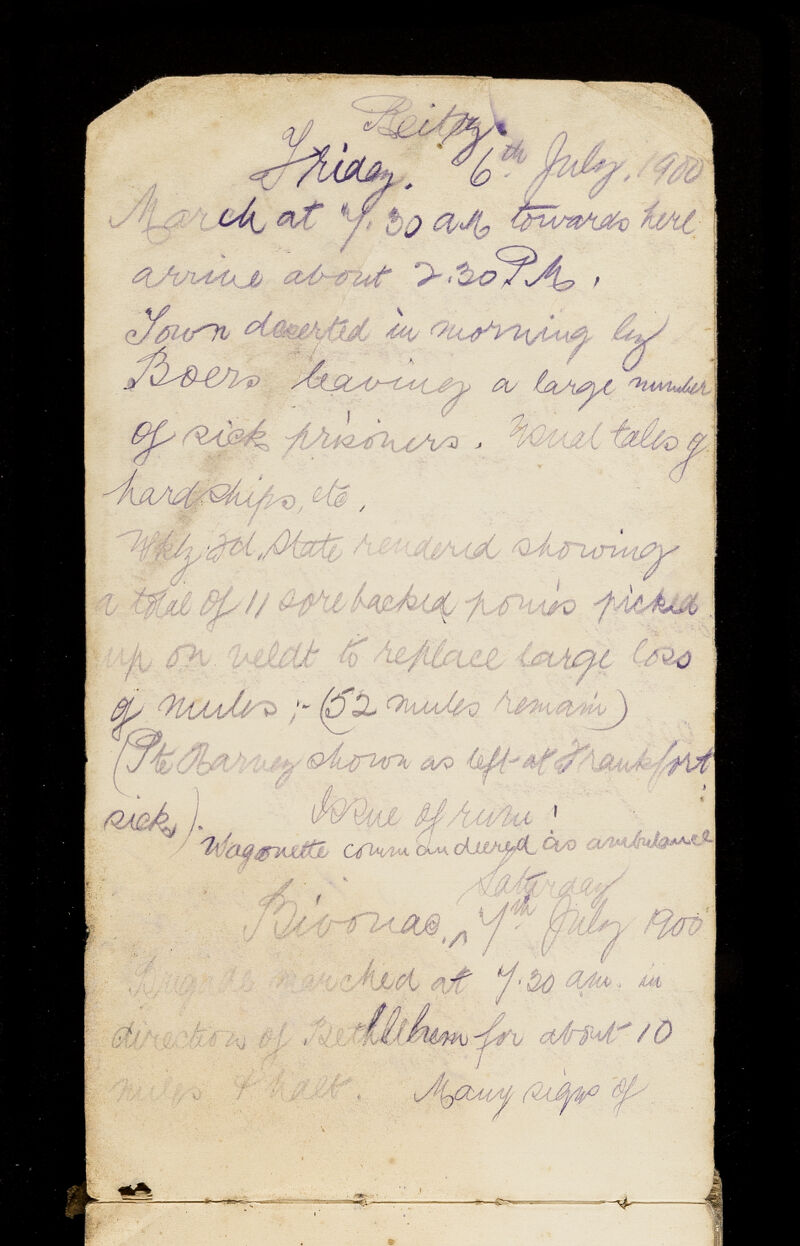 Reitz.
Friday. 6th July. 1900
March at 7.30 AM towards here
arrive about 2.30 PM.
Town deserted in morning by
Boers leaving a large number
of sick prisoners. Usual tales of
hardships, etc.
Wkly Fd. State rendered showing
a total of 11 sore backed ponies picked
up on veldt to replace large loss
of mules ;- (52 mules remain)
(Pte Harvey shown as left at Frankfort
sick). Issue of rum!
Wagonette commandeered as ambulance
Saturday
Bivouac. ^ 7th July 1900
Brigade marched at 7.30 am. in
direction of Bethlehem for about 10
miles & halt. Many signs of